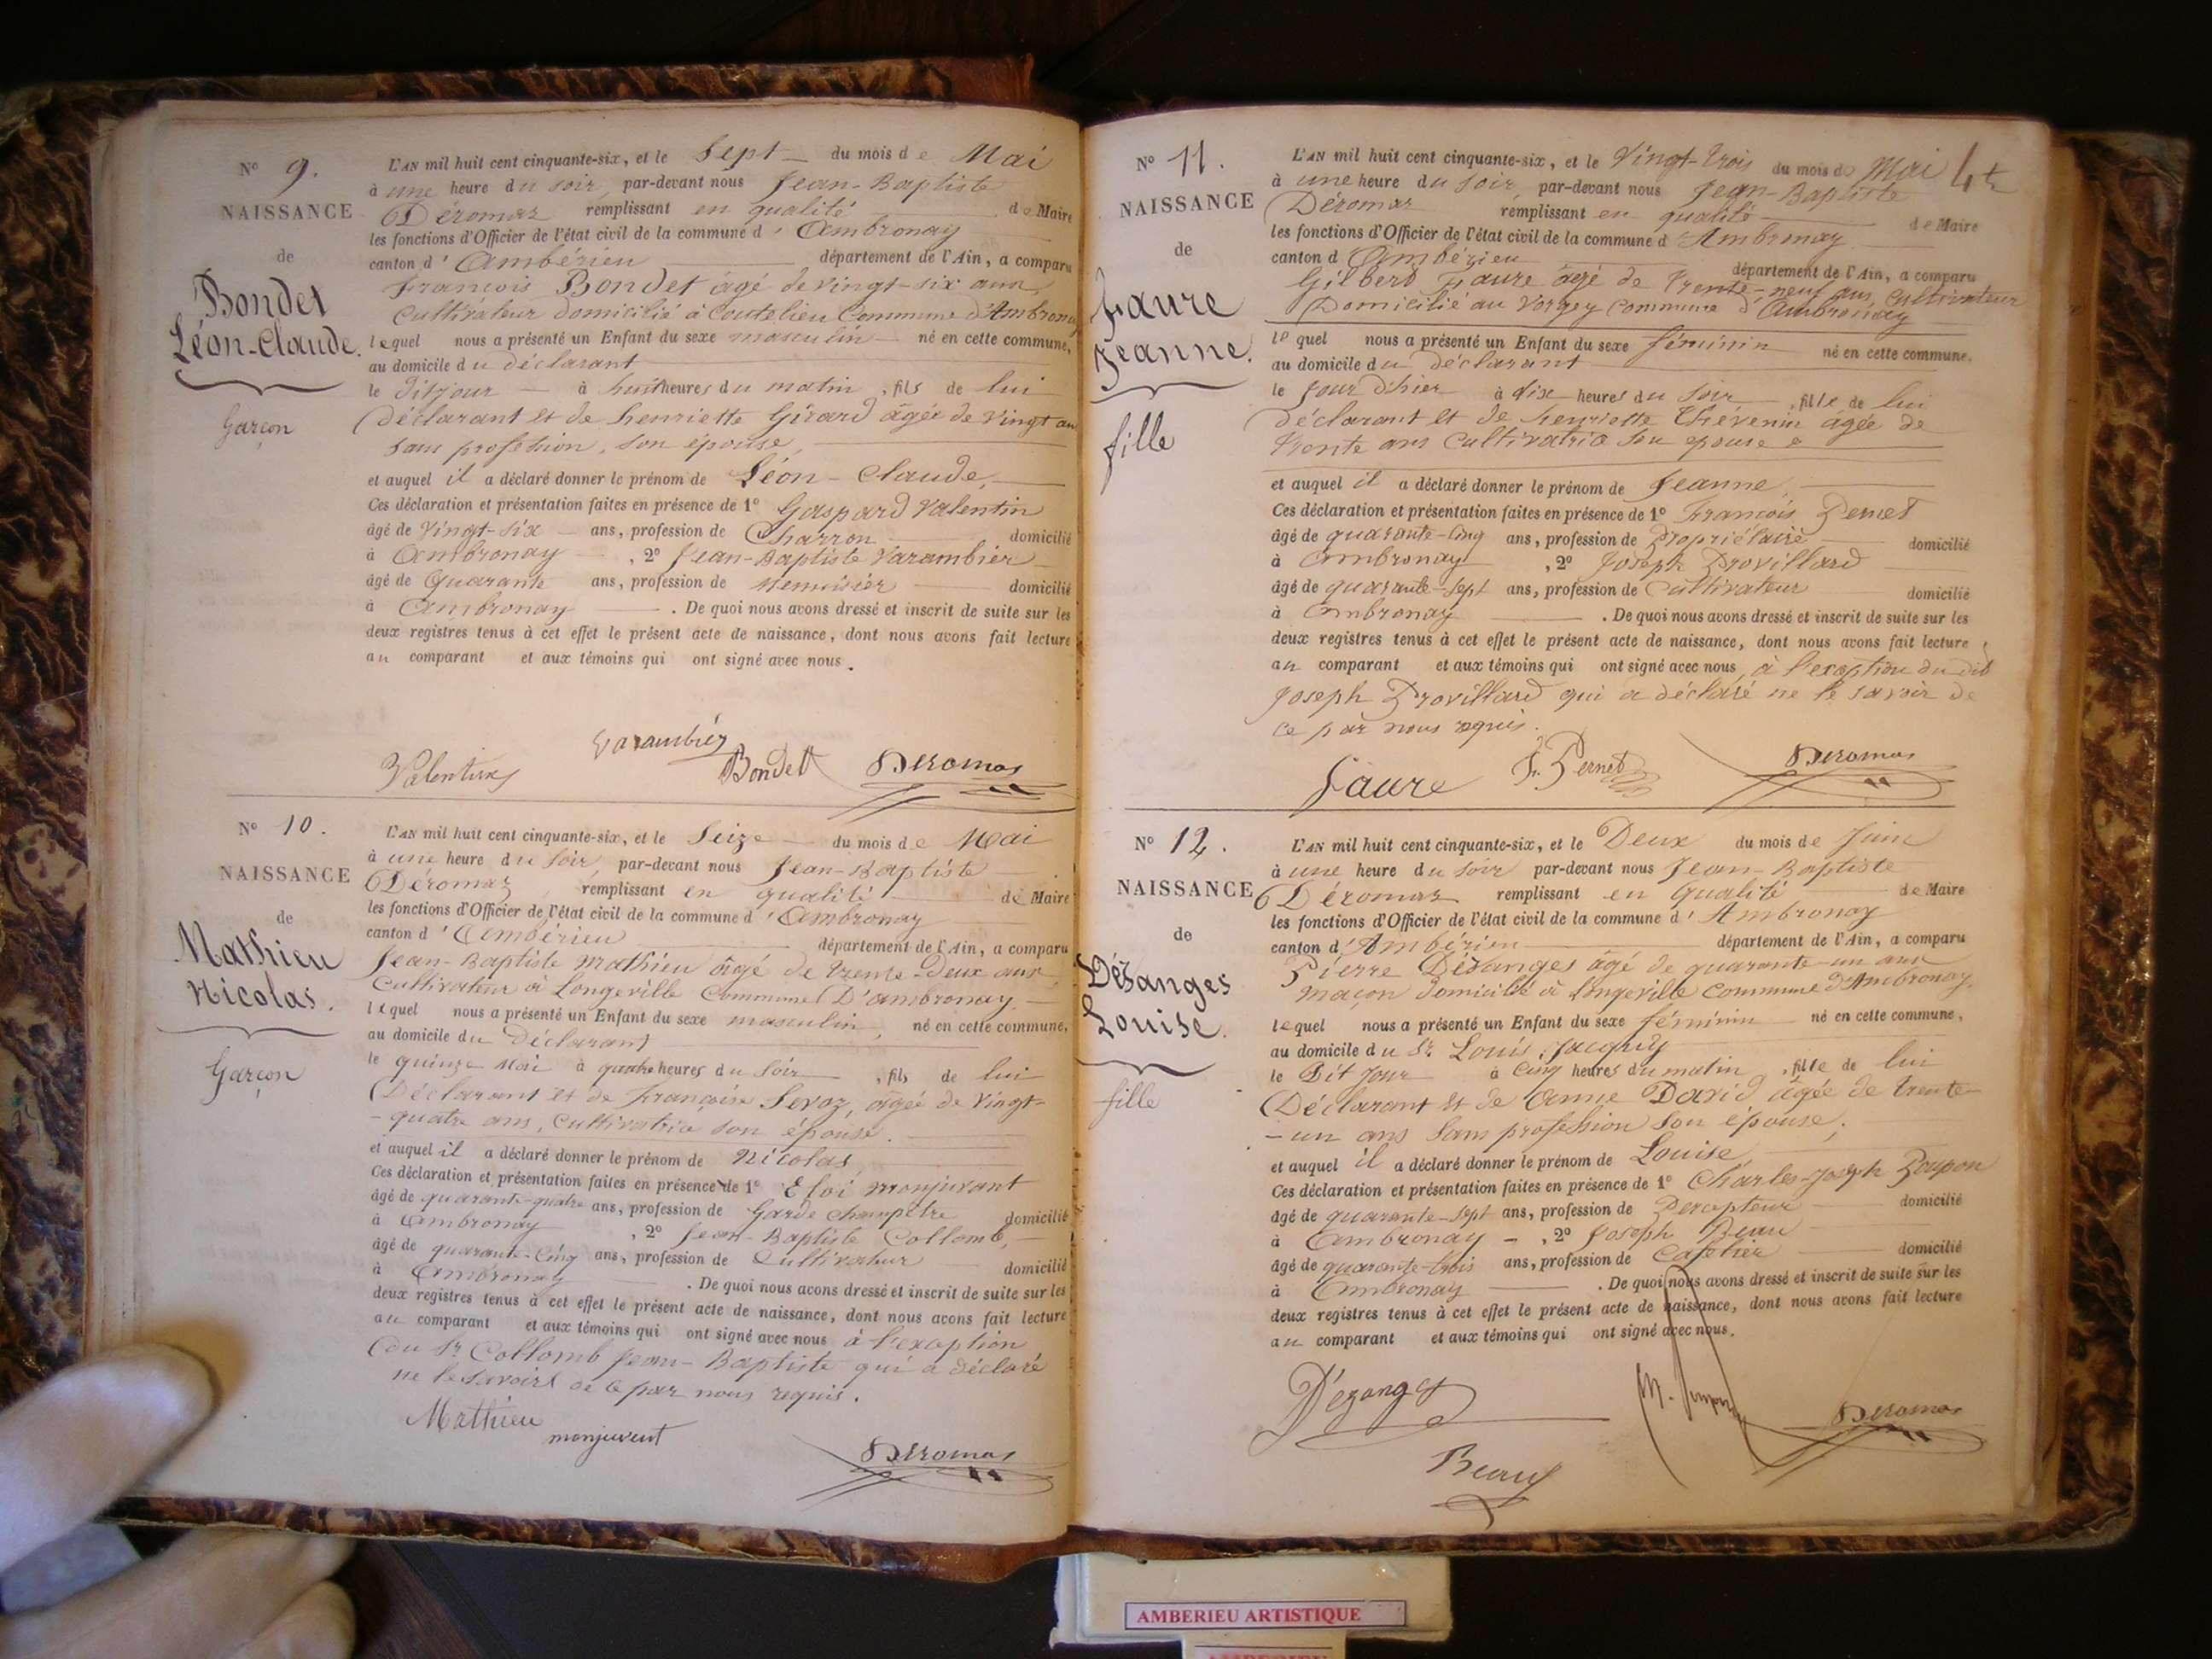 N° 9.
NAISSANCE
de
Bondet
Léon-Claude.
Garçon
L'AN mil huit cent cinquante-six, et le Sept du mois de Mai
à une heure du soir, par-devant nous Jean-Baptiste
Déromas remplissant en qualité de Maire
les fonctions d'Officier de l'état civil de la commune d'Ambronay
canton d'Ambérieu département de l'Ain, a comparu
François Bondet âgé de vingt-six ans,
cultivateur domicilié à Coutelieu Commune d'Ambronay
lequel nous a présenté un Enfant du sexe masculin né en cette commune,
au domicile du déclarant
le dit jour à huit heures du matin, fils de lui
Déclarant et de henriette Girard âgée de Vingt ans
sans profession, son épouse,
et auquel il a déclaré donner le prénom de Léon-Claude,
Ces déclaration et présentation faites en présence de 1° Gaspard Valentin
âgé de vingt-six ans, profession de Charron domicilié
à Ambronay, 2° Jean-Baptiste Varambier
âgé de Quarante ans, profession de Menuisier domicilié
à Ambronay. De quoi nous avons dressé et inscrit de suite sur les
deux registres tenus à cet effet le présent acte de naissance, dont nous avons fait lecture
au comparant et aux témoins qui ont signé avec nous.
Varambier
Valentin Bondet Deromas
N° 10.
NAISSANCE
de
Mathieu
Nicolas.
Garçon
L'AN mil huit cent cinquante-six, et le Seize du mois de Mai
à une heure du soir, par-devant nous Jean-Baptiste
Déromas, remplissant en qualité de Maire
les fonctions d'Officier de l'état civil de la commune d'Ambronay
canton d'Ambérieu département de l'Ain, a comparu
Jean-Baptiste Mathieu âgé de trente-deux ans
Cultivateur à Longeville Commune D'ambronay
lequel nous a présenté un Enfant du sexe masculin, né en cette commune,
au domicile du Déclarant
le quinze Mai à quatre heures du soir, fils de lui
Déclarant et de Françoise Sevoz, âgée de Vingt-
-quatre ans, Cultivatrice son épouse.
et auquel il a déclaré donner le prénom de Nicolas
Ces déclaration et présentation faites en présence de 1° Eloi monjuvant
âgé de quarante-quatre ans, profession de Garde champêtre domicilié
à Ambronay, 2° Jean-Baptiste Collomb,
âgé de quarante-cinq ans, profession de Cultivateur domicilié
à Ambronay. De quoi nous avons dressé et inscrit de suite sur les
deux registres tenus à cet effet le présent acte de naissance, dont nous avons fait lecture
au comparant et aux témoins qui ont signé avec nous à l'exception
du Sr. Collomb Jean-Baptiste qui a déclaré
ne le savoir de ce par nous requis.
Mathieu monjuvent
Deromas
N° 11.
NAISSANCE
de
Faure
Jeanne.
fille
L'AN mil huit cent cinquante-six, et le Vingt-trois du mois de Mai
à une heure du soir, par-devant nous Jean-Baptiste
Déromas remplissant en qualité de Maire
les fonctions d'Officier de l'état civil de la commune d'Ambronay
canton d'Ambérieu département de l'Ain, a comparu
Gilbert Faure âgé de trente-neuf ans, Cultivateur
Domicilié au Vorgey Commune d'Ambronay
lequel nous a présenté un Enfant du sexe féminin né en cette commune,
au domicile du déclarant
le jour d'hier à dix heures du soir, fille de lui
déclarant et de henriette Thévenin âgée de
trente ans cultivatrice son epouse
et auquel il a déclaré donner le prénom de Jeanne,
Ces déclaration et présentation faites en présence de 1° François Pernet
âgé de quarante-cinq ans, profession de Propriétaire domicilié
à Ambronay, 2° Joseph Drovillard
âgé de quarante-sept ans, profession de Cultivateur domicilié
à Ambronay. De quoi nous avons dressé et inscrit de suite sur les
deux registres tenus à cet effet le présent acte de naissance, dont nous avons fait lecture
au comparant et aux témoins qui ont signé avec nous, à l'exception du dit
Joseph Drovillard qui a déclaré ne le savoir de
ce par nous requis.
Faure F. Pernet Deromas
N° 12.
NAISSANCE
de
Désanges
Louise.
fille
L'AN mil huit cent cinquante-six, et le Deux du mois de Juin
à une heure du soir par-devant nous Jean-Baptiste
Déromas remplissant en qualité de Maire
les fonctions d'Officier de l'état civil de la commune d'Ambronay
canton d'Ambérieu département de l'Ain, a comparu
Pierre Désanges âgé de quarante-un ans
maçon domicilié à Longeville Commune d'Ambronay.
lequel nous a présenté un Enfant du sexe féminin né en cette commune,
au domicile du Sr. Louis Jacquy
le Dit jour à cinq heures du matin, fille de lui
Déclarant et de Anne David âgée de trente-
-un ans sans profession son épouse;
et auquel il a déclaré donner le prénom de Louise,
Ces déclaration et présentation faites en présence de 1° Charles-Joseph
âgé de quarante-sept ans, profession de Percepteur domicilié
à Ambronay, 2° Joseph Beau
âgé de quarante-trois ans, profession de Cafetier domicilié
à Ambronay. De quoi nous avons dressé et inscrit de suite sur les
deux registres tenus à cet effet le présent acte de naissance, dont nous avons fait lecture
au comparant et aux témoins qui ont signé avec nous.
Dézanges Deromas
Beau
AMBERIEU ARTISTIQUE
AMBERIEU